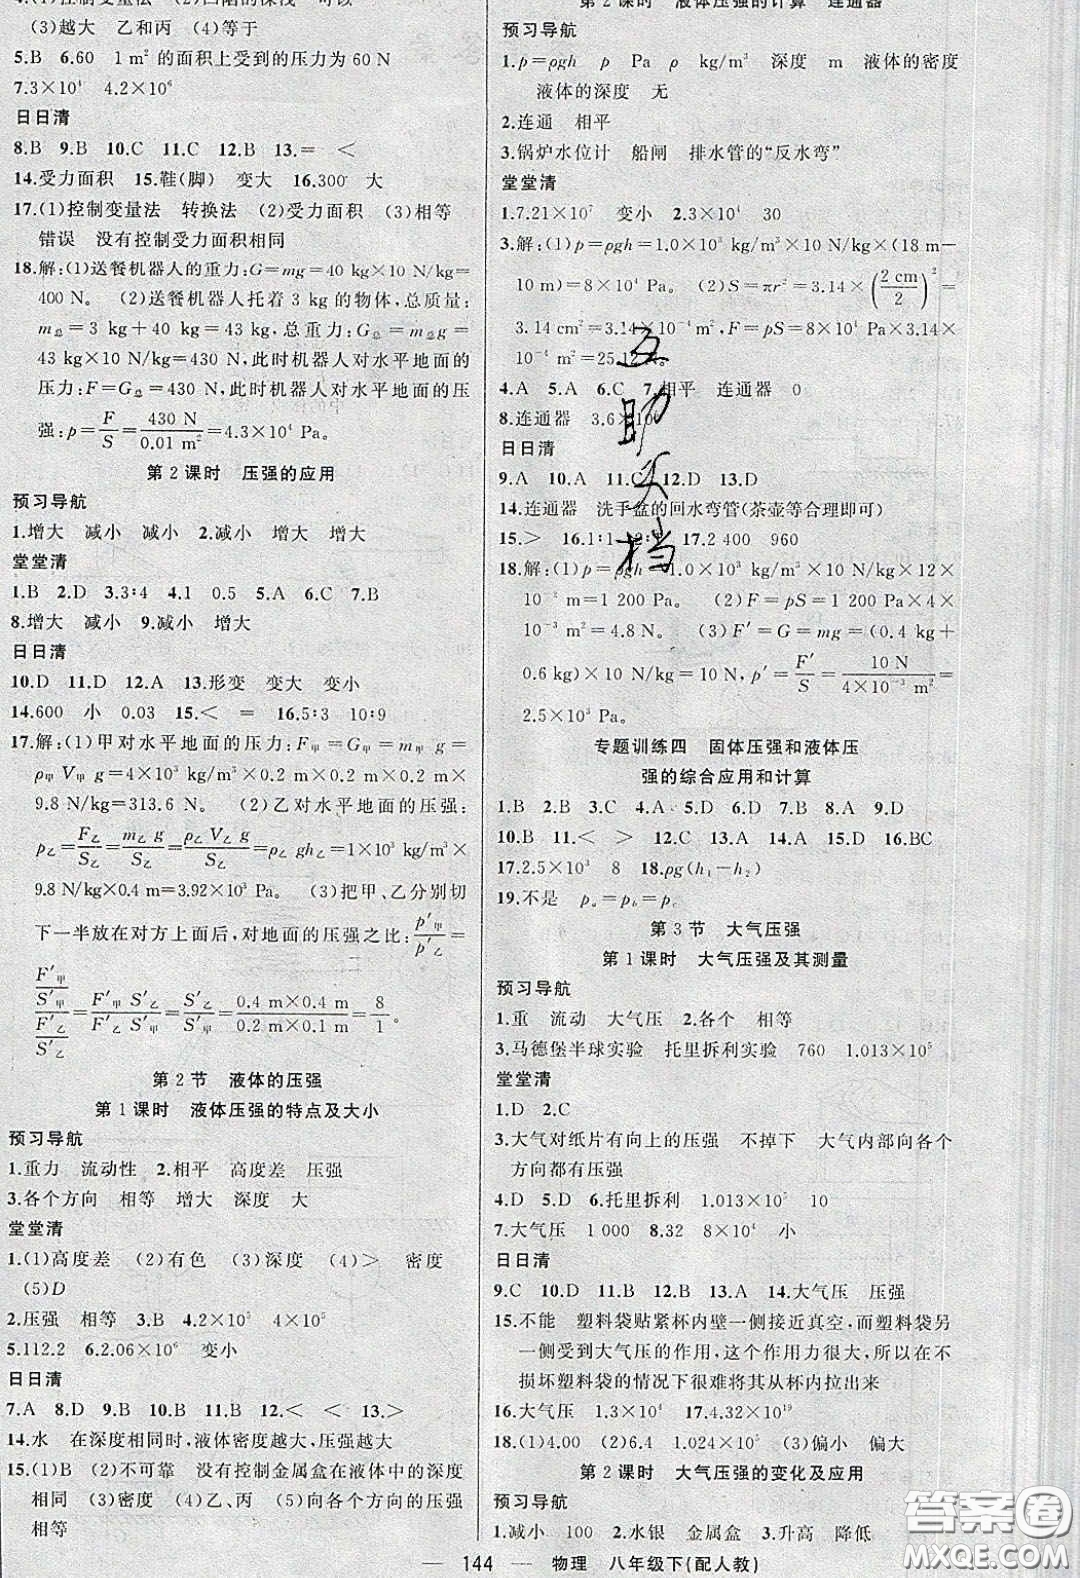 (3)越大 乙和丙 (4)等于
5.B 6.60 1 m²的面积上受到的压力为 60 N
7.3×10⁴ 4.2×10⁶
日日清
8.B 9.B 10.C 11.C 12.B 13.= <
14.受力面积 15.鞋(脚) 变大 16.300 大
17.(1)控制变量法 转换法 (2)受力面积 (3)相等
错误 没有控制受力面积相同
18.解:(1)送餐机器人的重力:G=mg=40 kg×10 N/kg=
400 N。 (2)送餐机器人托着 3 kg 的物体,总质量:
m总=3 kg+40 kg=43 kg,总重力:G总=m总g=
43 kg×10 N/kg=430 N,此时机器人对水平地面的
压力:F=G总=430 N,此时机器人对水平地面的压
强:p=F/S=430 N/0.01 m²=4.3×10⁴ Pa。
第 2 课时 压强的应用
预习导航
1.增大 减小 减小 2.增大 减小 增大
堂堂清
1.B 2.D 3.3∶4 4.1 0.5 5.A 6.C 7.B
8.增大 减小 9.减小 增大
日日清
10.D 11.D 12.A 13.形变 变大 变小
14.600 小 0.03 15.< = 16.5∶3 10∶9
17.解:(1)甲对水平地面的压力:F甲=G甲=m甲g=
ρ甲V甲g=4×10³ kg/m³×0.2 m×0.2 m×0.2 m×
9.8 N/kg=313.6 N。 (2)乙对水平地面的压强:
p乙=F乙/S乙=m乙g/S乙=ρ乙V乙g/S乙=ρ乙gh乙=1×10³ kg/m³×
9.8 N/kg×0.4 m=3.92×10³ Pa。 (3)把甲、乙分别切
下一半放在对方上面后,对地面的压强之比:p′甲/p′乙=
(F′甲/S′甲)/(F′乙/S′乙)=F′甲S′乙/F′乙S′甲=S′乙/S′甲=0.4 m×0.4 m/0.2 m×0.1 m=8/1。
第 2 节 液体的压强
第 1 课时 液体压强的特点及大小
预习导航
1.重力 流动性 2.相平 高度差 压强
3.各个方向 相等 增大 深度 大
堂堂清
1.(1)高度差 (2)有色 (3)深度 (4)> 密度
(5)D
2.压强 相等 3.A 4.2×10⁵ 4×10⁵
5.112.2 6.2.06×10⁶ 变小
日日清
7.A 8.D 9.B 10.B 11.B 12.< < 13.>
14.水 在深度相同时,液体密度越大,压强越大
15.(1)B (2)不可靠 没有控制金属盒在液体中的深度
相同 (3)密度 (4)乙、丙 (5)向各个方向的压强
相等
第 2 课时 液体压强的计算 连通器
预习导航
1.p=ρgh p Pa ρ kg/m³ 深度 m 液体的密度
液体的深度 无
2.连通 相平
3.锅炉水位计 船闸 排水管的“反水弯”
堂堂清
1.7.21×10⁷ 变小 2.3×10⁴ 30
3.解:(1)p=ρgh=1.0×10³ kg/m³×10 N/kg×(18 m-
10 m)=8×10⁴ Pa。 (2)S=πr²=3.14×(2 cm/2)²=
3.14 cm²=3.14×10⁻⁴ m²,F=pS=8×10⁴ Pa×3.14×
10⁻⁴ m²=25.12 N。
4.A 5.A 6.C 7.相平 连通器 0
8.连通器 3.6×10⁶
日日清
9.A 10.A 11.C 12.D 13.D
14.连通器 洗手盆的回水弯管(茶壶等合理即可)
15.> 16.1∶1 17.2 400 960
18.解:(1)p=ρgh=1.0×10³ kg/m³×10 N/kg×12×
10⁻² m=1 200 Pa。 (2)F=pS=1 200 Pa×4×
10⁻³ m²=4.8 N。 (3)F′=G=mg=(0.4 kg+
0.6 kg)×10 N/kg=10 N,p′=F′/S=10 N/4×10⁻³ m²=
2.5×10³ Pa。
专题训练四 固体压强和液体压
强的综合应用和计算
1.B 2.B 3.C 4.A 5.D 6.D 7.B 8.A 9.D
10.B 11.< > 12.C 13.A 14.A 15.D 16.BC
17.2.5×10³ 8 18.ρg(h₁-h₂)
19.不是 pₐ=p_b=p_c
第 3 节 大气压强
第 1 课时 大气压强及其测量
预习导航
1.重 流动 大气压 2.各个 相等
3.马德堡半球实验 托里拆利实验 760 1.013×10⁵
堂堂清
1.D 2.C
3.大气对纸片有向上的压强 不掉下 大气内部向各个
方向都有压强
4.D 5.D 6.托里拆利 1.013×10⁵ 10
7.大气压 1 000 8.32 8×10⁴ 小
日日清
9.C 10.D 11.B 12.B 13.A 14.大气压 压强
15.不能 塑料袋贴紧杯内壁一侧接近真空,而塑料袋另
一侧受到大气压的作用,这个作用力很大,所以在不
损坏塑料袋的情况下很难将其从杯内拉出来
16.大气压 1.3×10⁴ 17.4.32×10¹⁹
18.(1)4.00 (2)6.4 1.024×10⁵ (3)偏小 偏大
第 2 课时 大气压强的变化及应用
预习导航
1.减小 100 2.水银 金属盒 3.升高 降低
— 144 — 物理 八年级下(配人教)
互助文档
答案圈
MXQE.COM